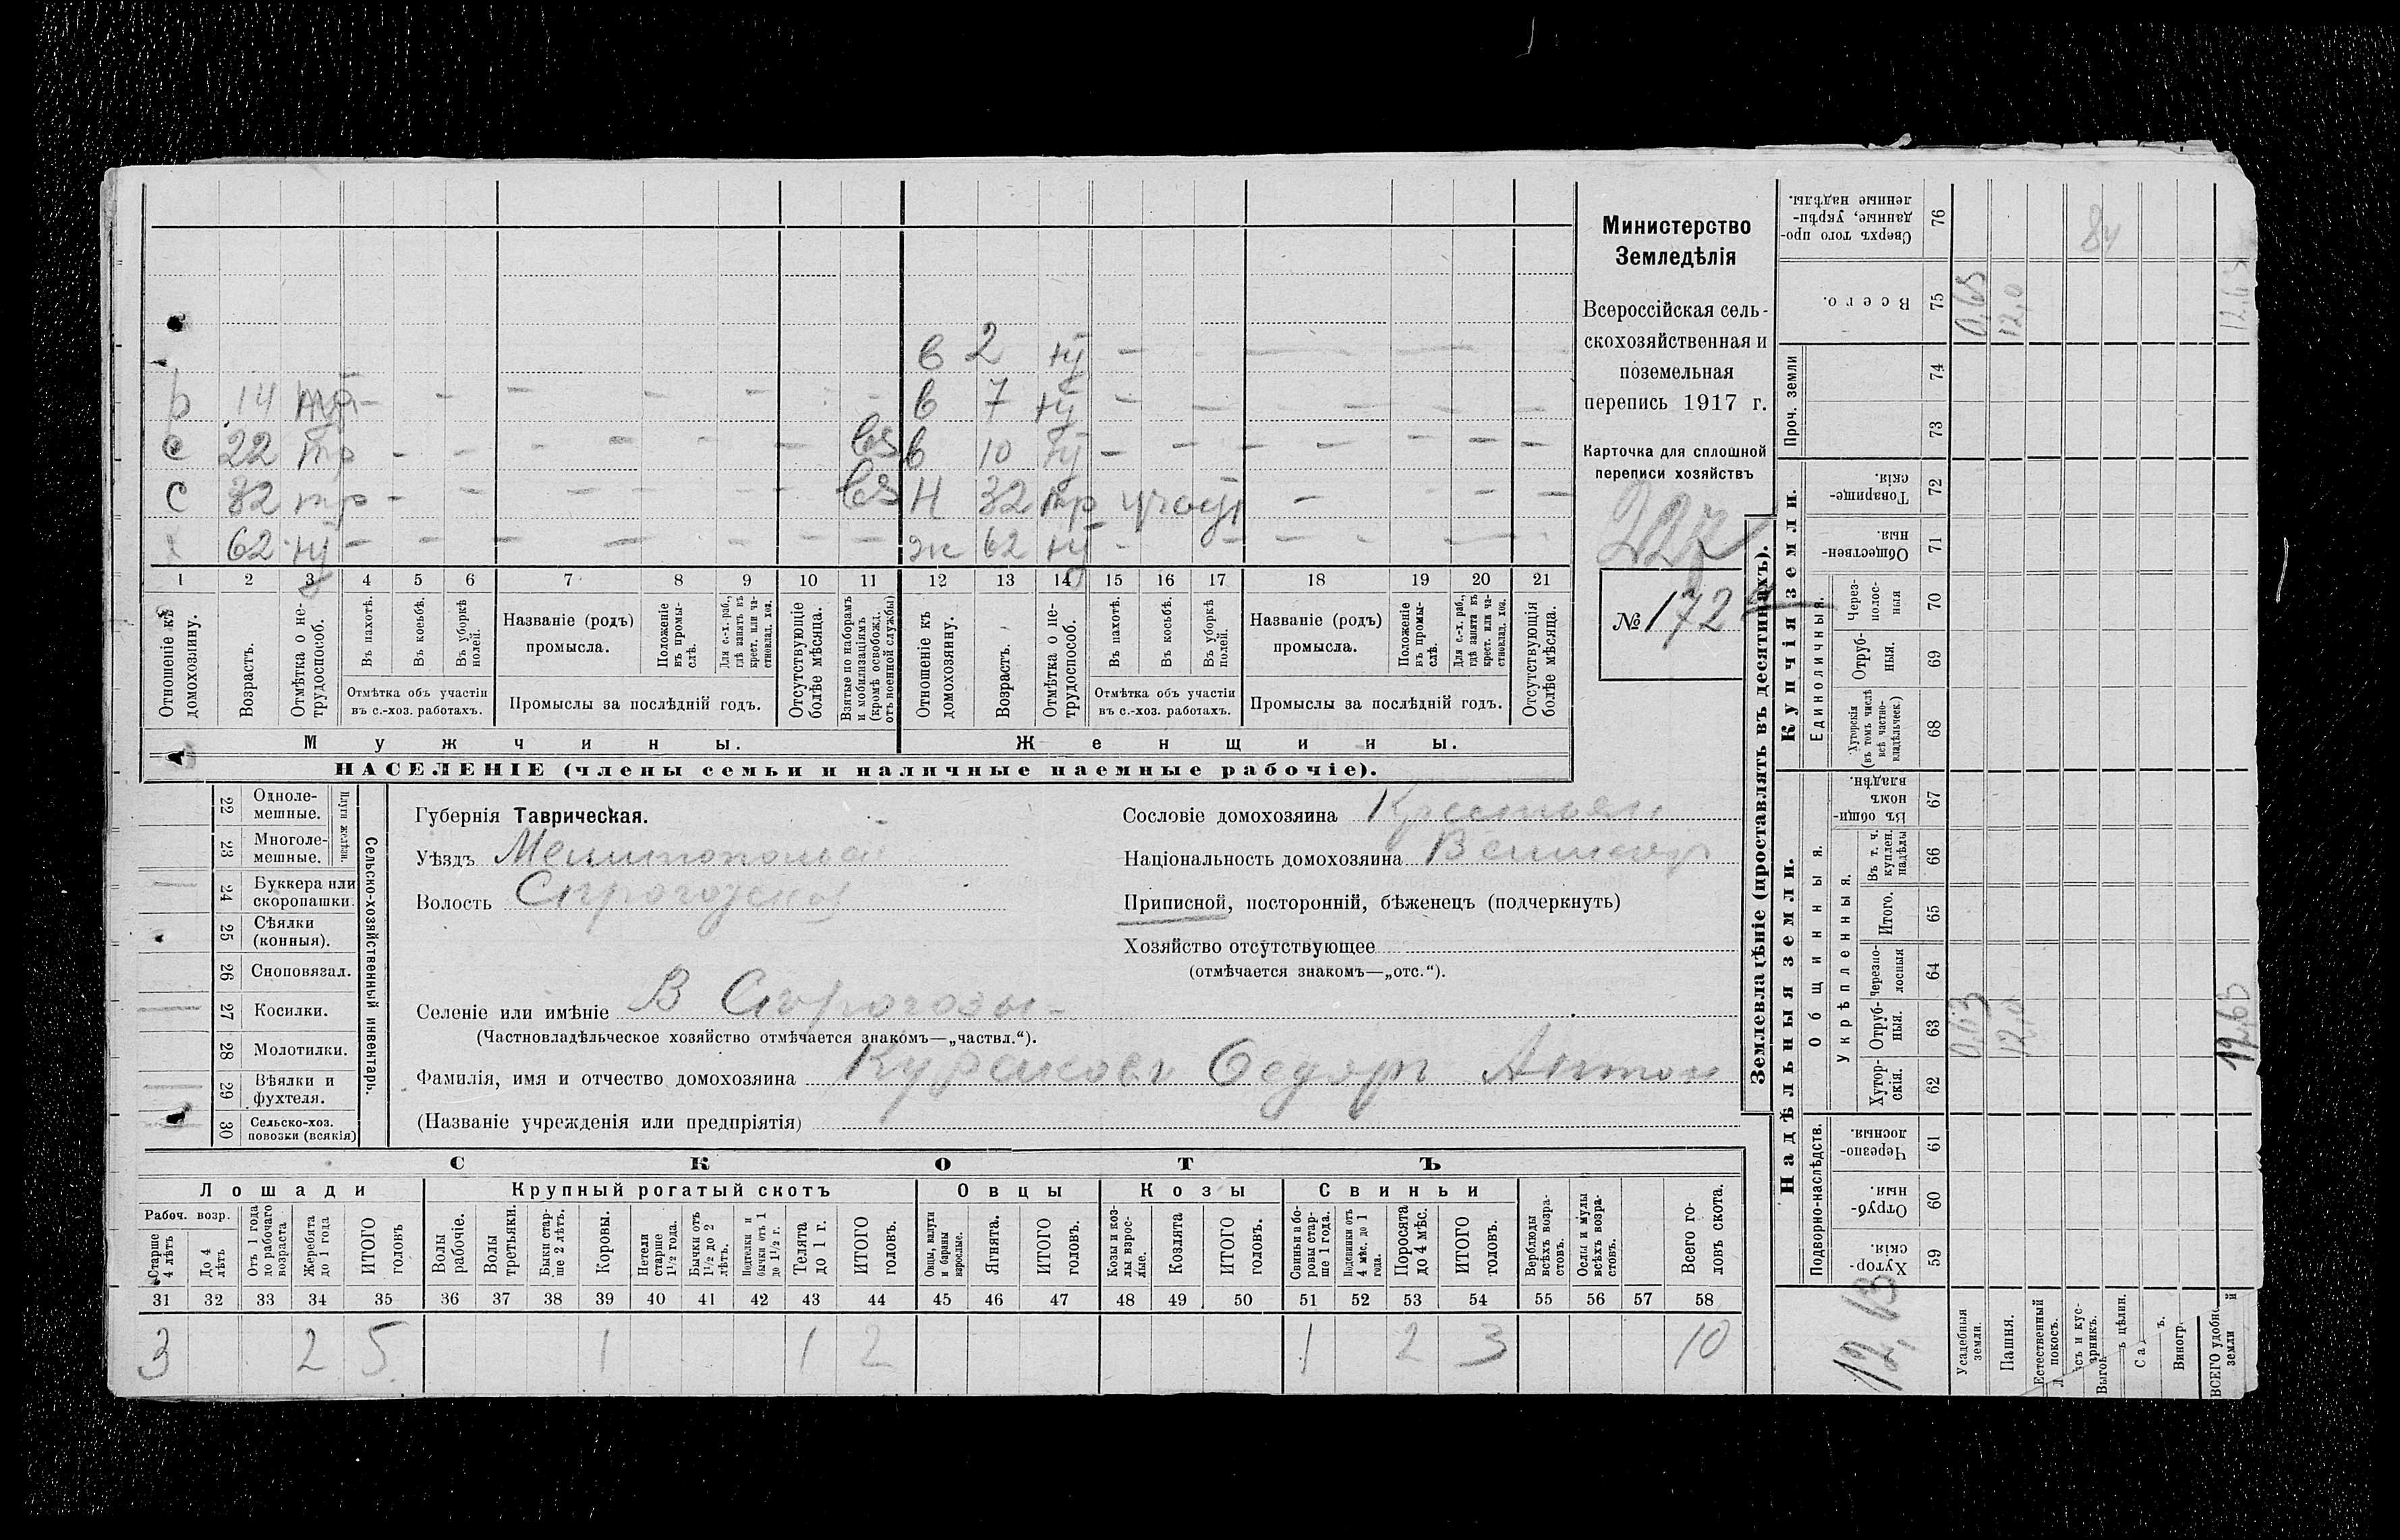 Министерство
Земледѣлія
Всероссійская сель-
скохозяйственная и
поземельная
перепись 1917 г.
Карточка для сплошной
переписи хозяйствъ
227
№ 172
в 2 —
14 — — — — — — в 7 —
с 22 тр — — — — — — в 10 — — — — — — —
с 32 тр — — — — — Н 32 тр — — — —
62 — — — — — — — — ж 62 — — — — —
1 2 3 4 5 6 7 8 9 10 11 12 13 14 15 16 17 18 19 20 21
Отношеніе къ домохозяину.
Возрастъ.
Отмѣтка о не-трудоспособ.
Въ пахотѣ.
Въ косьбѣ.
Въ уборкѣ полей.
Отмѣтка объ участіи
въ с.-хоз. работахъ.
Названіе (родъ)
промысла.
Положеніе въ промы-слѣ.
Для с.-х. раб., гдѣ занятъ въ крест. или ча-стновлад. хоз.
Промыслы за послѣдній годъ.
Отсутствующіе болѣе мѣсяца.
Взятые по наборамъ и мобилизаціямъ (кромѣ освобожд. отъ военной службы)
Отношеніе къ домохозяину.
Возрастъ.
Отмѣтка о не-трудоспособ.
Въ пахотѣ.
Въ косьбѣ.
Въ уборкѣ полей.
Отмѣтка объ участіи
въ с.-хоз. работахъ.
Названіе (родъ)
промысла.
Положеніе въ промы-слѣ.
Для с.-х. раб., гдѣ занята въ крест. или ча-стновлад. хоз.
Промыслы за послѣдній годъ.
Отсутствующія болѣе мѣсяца.
Мужчины. Женщины.
НАСЕЛЕНІЕ (члены семьи и наличные наемные рабочіе).
Сельско-хозяйственный инвентарь.
Плуги желѣзн.
22 Одноле-
мешные.
23 Многоле-
мешные.
24 Буккера или
скоропашки.
25 Сѣялки
(конныя).
26 Сноповязал.
27 Косилки.
28 Молотилки.
29 Вѣялки и
фухтеля.
30 Сельско-хоз.
повозки (всякія)
Губернія Таврическая.
Уѣздъ Мелитопольскій
Волость
Селеніе или имѣніе В Сѣрогозы
(Частновладѣльческое хозяйство отмѣчается знакомъ—„частвл.“).
Фамилія, имя и отчество домохозяина Кураковъ Федоръ Антон
(Названіе учрежденія или предпріятія)
Сословіе домохозяина Крестьян
Національность домохозяина Великор
Приписной, посторонній, бѣженецъ (подчеркнуть)
Хозяйство отсутствующее
(отмѣчается знакомъ—„отс.“).
СКОТЪ
Лошади Крупный рогатый скотъ Овцы Козы Свиньи
Рабоч. возр.
Старше 4 лѣтъ
До 4 лѣтъ
Отъ 1 года до рабочаго возраста
Жеребята до 1 года
ИТОГО головъ
Волы рабочіе.
Волы третьяки.
Быки стар-ше 2 лѣтъ.
Коровы.
Нетели старше 1½ года.
Бычки отъ 1½ до 2 лѣтъ.
Подтелки и бычки отъ 1 до 1½ г.
Телята до 1 г.
ИТОГО головъ.
Овцы, валухи и бараны взрослые.
Ягнята.
ИТОГО головъ.
Козы и коз-лы взрос-лые.
Козлята
ИТОГО головъ.
Свиньи и бо-ровы стар-ше 1 года.
Подсвинки отъ 4 мѣс. до 1 года.
Поросята до 4 мѣс.
ИТОГО головъ.
Верблюды всѣхъ возра-стовъ.
Ослы и мулы всѣхъ возра-стовъ.
Всего го-ловъ скота.
31 32 33 34 35 36 37 38 39 40 41 42 43 44 45 46 47 48 49 50 51 52 53 54 55 56 57 58
3 2 5 1 1 2 1 2 3 10
Землевладѣніе (проставлять въ десятинахъ).
Надѣльныя земли. Купчія земли.
Подворно-наслѣдств.
Общинныя.
Укрѣпленныя.
Единоличныя.
Проч. земли
59 Хутор-скія.
60 Отруб-ныя.
61 Черезпо-лосныя.
62 Хутор-скія.
63 Отруб-ныя.
64 Черезпо-лосныя
65 Итого.
66 Въ т. ч. куплен. надѣлы
67 Въ общи-номъ владѣн.
68 Хуторскія (въ томъ числѣ всѣ частно-владѣльчес.)
69 Отруб-ныя.
70 Через-полос-ныя
71 Обществен-ныя.
72 Товарище-скія.
73
74
75 Всего.
76 Сверхъ того про-данные, укрѣп-ленные надѣлы.
Усадебныя земли.
Пашня.
Естественный покосъ.
Виногр.
ВСЕГО удобной земли
12,0
12,63
12,0
12,63